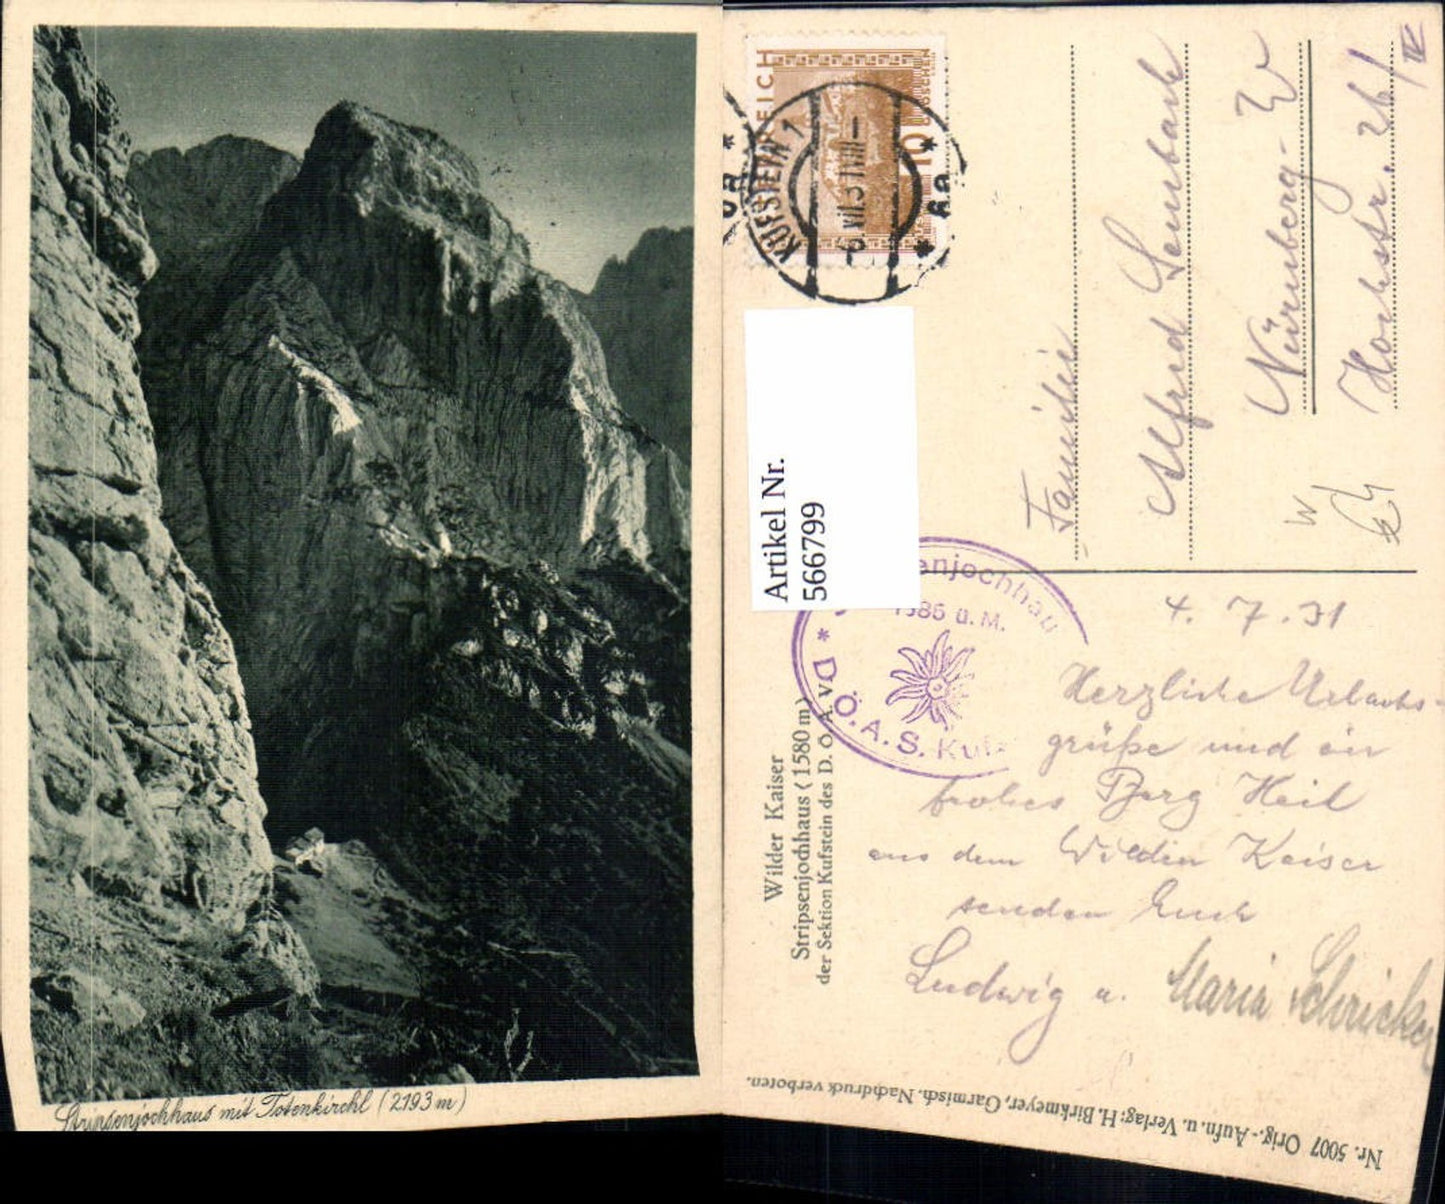 Stripsenjochhaus mit Totenkirchl (2193 m)
ÖSTERREICH
10 GROSCHEN
KUFSTEIN 1
Artikel Nr.
566799
Familie
Alfred
Nürnberg-W
Hochstr. 26/IV
enjochhau
1585 ü. M.
* D. Ö. A. V.
S. Kufs
Wilder Kaiser
Stripsenjochhaus (1580 m)
der Sektion Kufstein des D. Ö. A. V.
4. 7. 31
Herzliche Urlaubs-
grüße und ein
frohes Berg Heil
aus dem Wilden Kaiser
senden Euch
Ludwig u. Maria Schricker
Nr. 5007 Orig.-Aufn. u. Verlag: H. Birkmeyer, Garmisch. Nachdruck verboten.